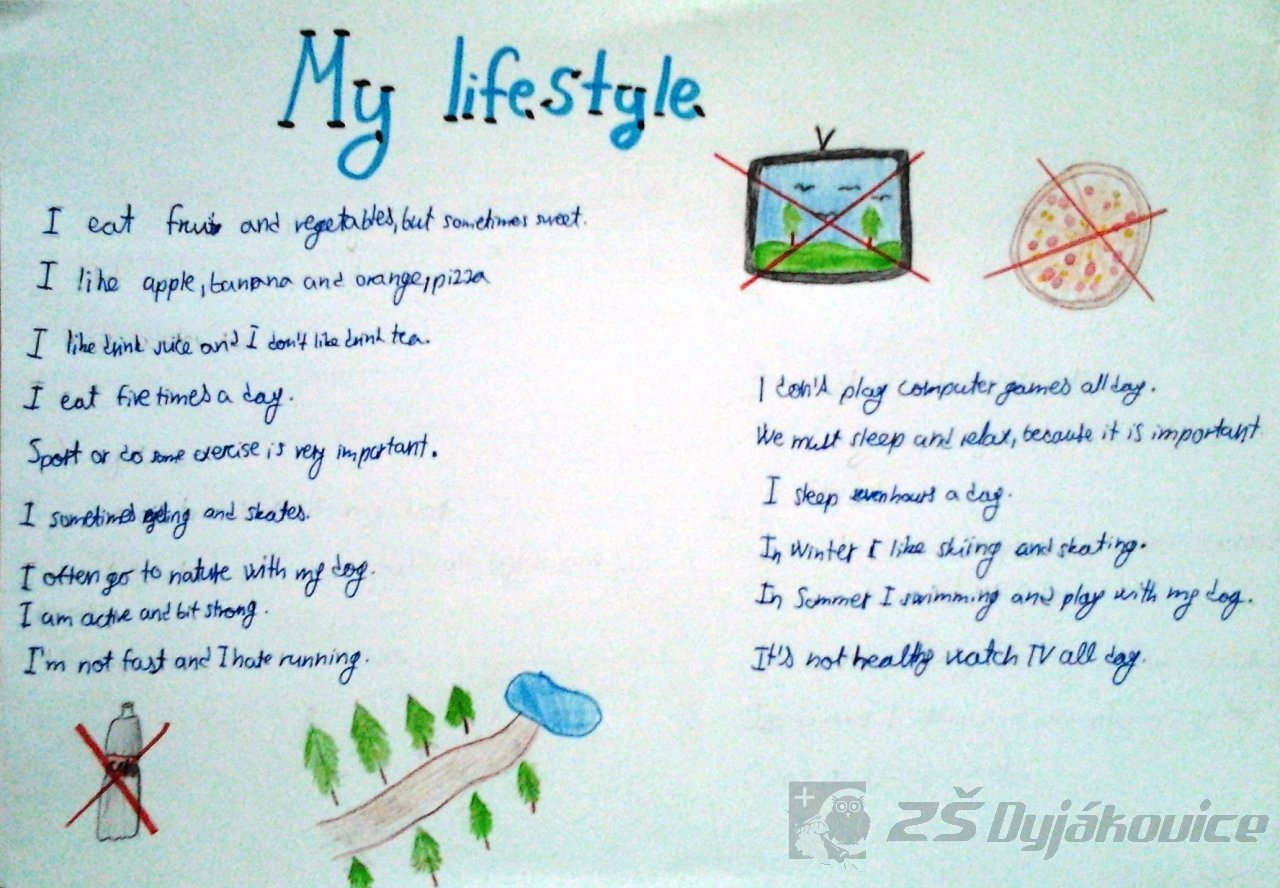 My lifestyle
I eat fruit and vegetables, but sometimes sweet.
I like apple, banana and orange, pizza
I like drink juice and I don't like drink tea.
I eat five times a day.
Sport or do some exercise is very important.
I sometimes and skates.
I often go to nature with my dog.
I am active and bit strong.
I'm not fast and I hate running.
I don't play computer games all day.
We must sleep and relax, because it is important.
I sleep seven hours a day.
In Winter I like skiing and skating.
In Summer I swimming and play with my dog.
It's not healthy watch TV all day.
ZŠ Dyjákovice